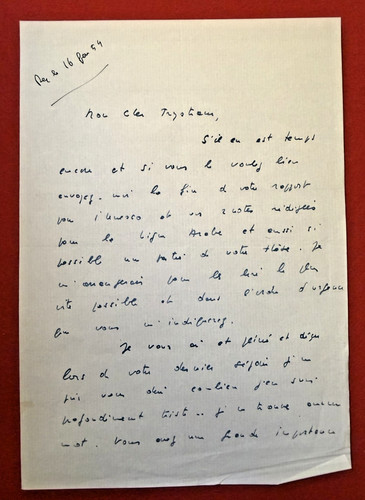 le 16 54
Mon Cher Trystram,
S'il en est temps
encore et si vous le voulez bien
envoyez-moi la fin de votre rapport
pour l'Unesco et vos 2 notes rédigées
pour la Ligue Arabe et aussi si
possible un de votre thèse. Je
m'arrangerais pour les lire le plus
vite possible et dans l'ordre d'urgence
que vous m'indiquerez.
Je vous ai et
lors de votre dernier séjour je ne
puis vous dire combien j'en suis
profondément triste.. je ne trouve aucun
mot. Vous avez une grande importance